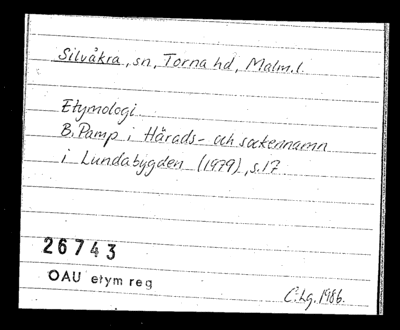 Silvåkra, sn, Torna hd, Malm.l.
Etymologi
B. Pamp i Härads- och sockennamn
i Lundabygden (1979), s.17
26743
OAU etym reg
C.Lg. 1986.